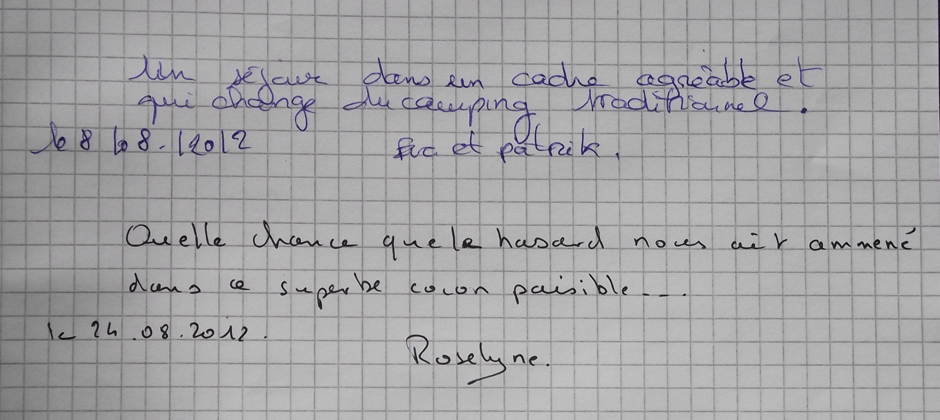 Un séjour dans un cadre agréable et
qui change du camping traditionnel.
le 8/08./2012 et patrik.
Quelle chance que le hasard nous ait ammené
dans ce superbe cocon paisible...
le 24.08.2012.
Roselyne.